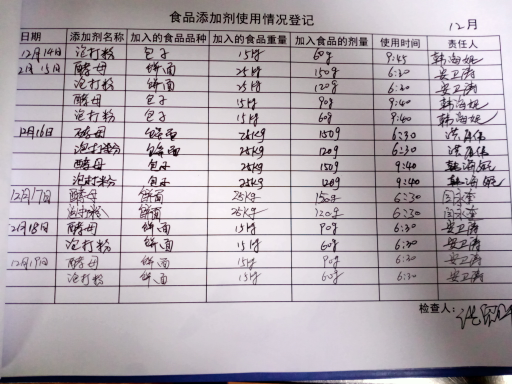 食品添加剂使用情况登记
12月
日期 添加剂名称 加入的食品品种 加入的食品重量 加入食品的剂量 使用时间 责任人
12月14日 泡打粉 包子 15kg 60g 9:45 韩海妮
12月15日 酵母 饼面 25kg 150g 6:30 安卫涛
泡打粉 饼面 25kg 120g 6:30 安卫涛
酵母 包子 15kg 90g 9:40 韩海妮
泡打粉 包子 15kg 60g 9:40 韩海妮
12月16日 酵母 饼面 25kg 150g 6:30
泡打粉 饼面 25kg 120g 6:30
酵母 包子 25kg 150g 9:40 韩海妮
泡打粉 包子 25kg 120g 9:40 韩海妮
12月17日 酵母 饼面 25kg 150g 6:30
泡打粉 饼面 25kg 120g 6:30
12月18日 酵母 饼面 15kg 90g 6:30 安卫涛
泡打粉 饼面 15kg 60g 6:30 安卫涛
12月19日 酵母 饼面 15kg 90g 6:30 安卫涛
泡打粉 饼面 15kg 60g 6:30 安卫涛
检查人: